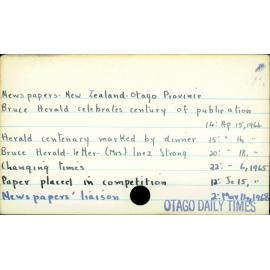 Newspapers- New Zealand- Otago Province
Bruce Herald celebrates century of publication
14: Ap 15, 1964
Herald centenary marked by dinner 15: " 16, "
Bruce Herald- letter- (Mrs) Inez Strang 20: " 18, -
Changing times 22: - 6, 1965
Paper placed in competition 12: Je 15, "
Newspapers' liaison 2: Mar 12, 1968
OTAGO DAILY TIMES